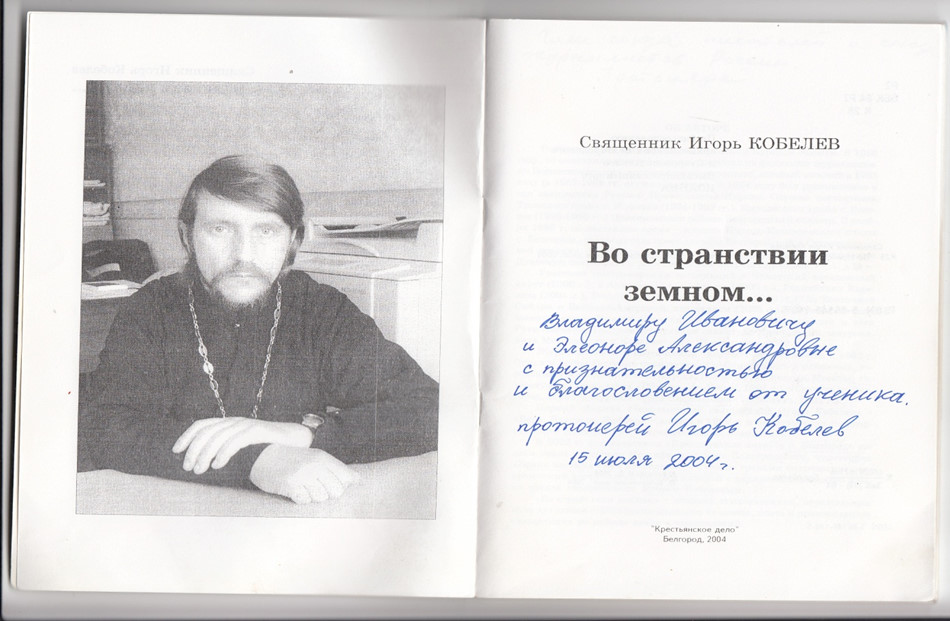 Священник Игорь КОБЕЛЕВ
Во странствии
земном...
Владимиру Ивановичу
и Элеоноре Александровне
с признательностью
и благословением от ученика.
протоиерей Игорь Кобелев
15 июля 2004 г.
"Крестьянское дело"
Белгород, 2004